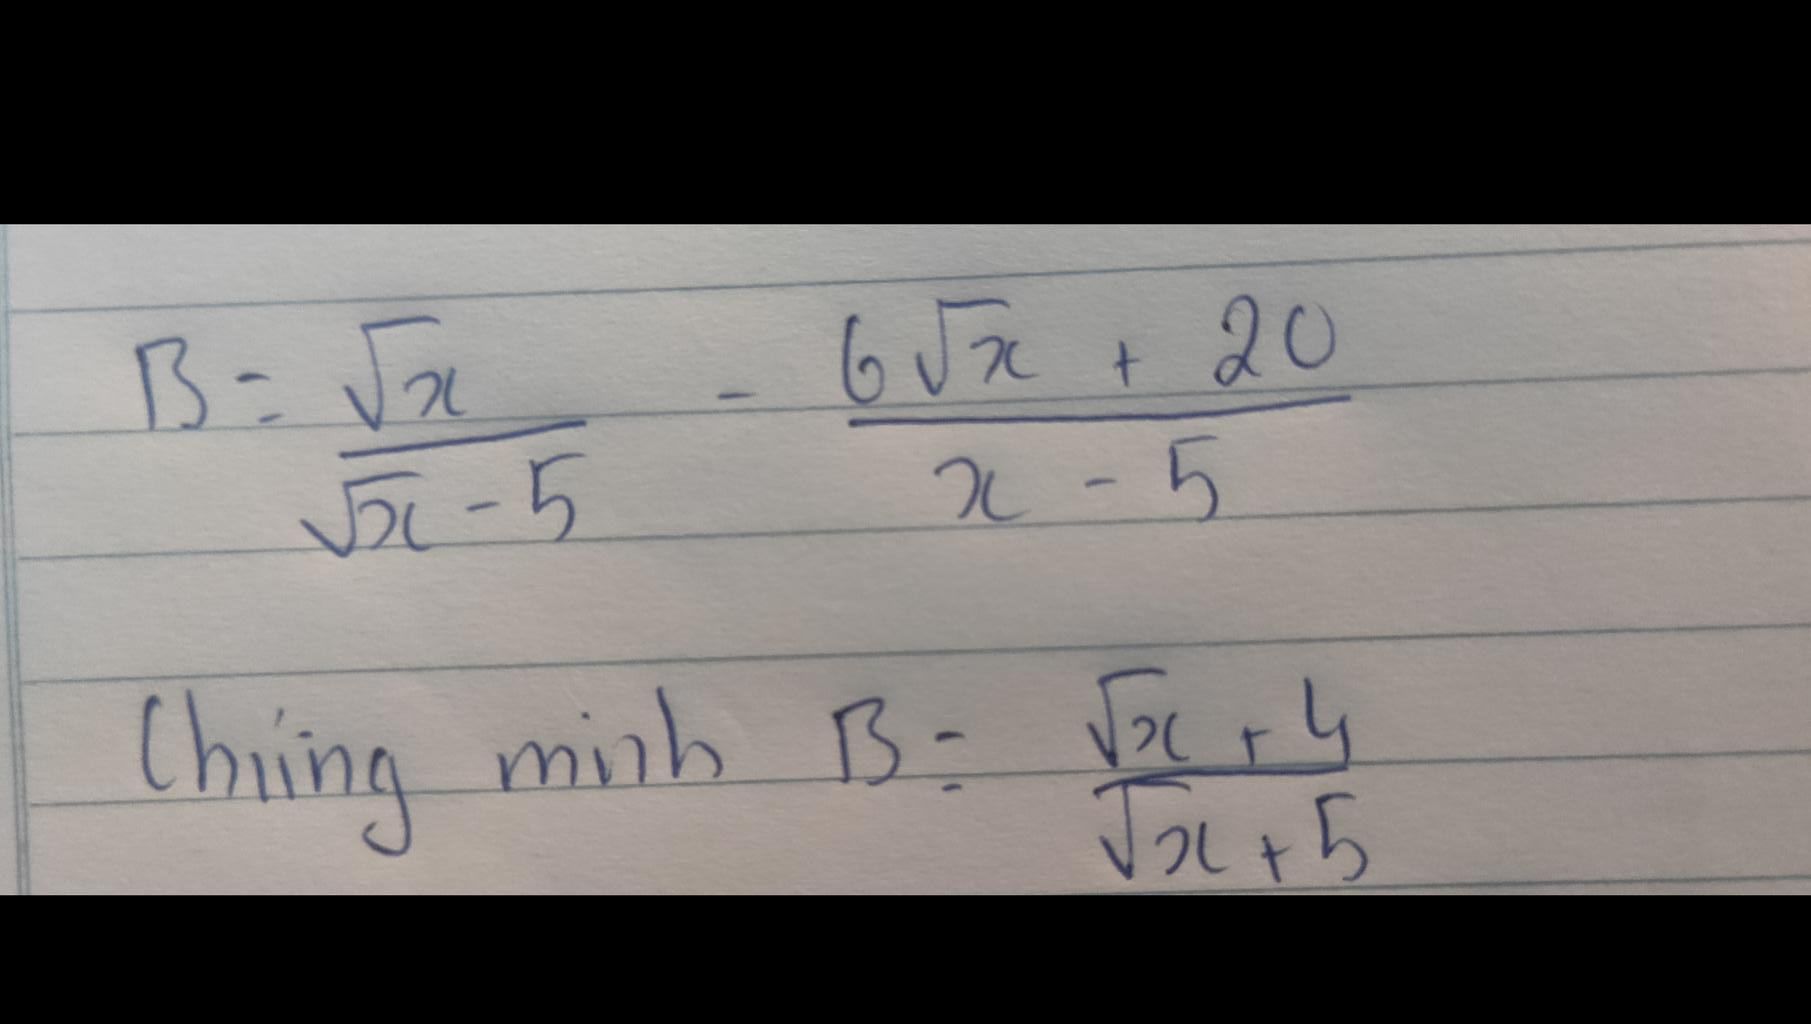 B = √x / (√x - 5) - (6√x + 20) / (x - 5)
Chứng minh B = (√x + 4) / (√x + 5)